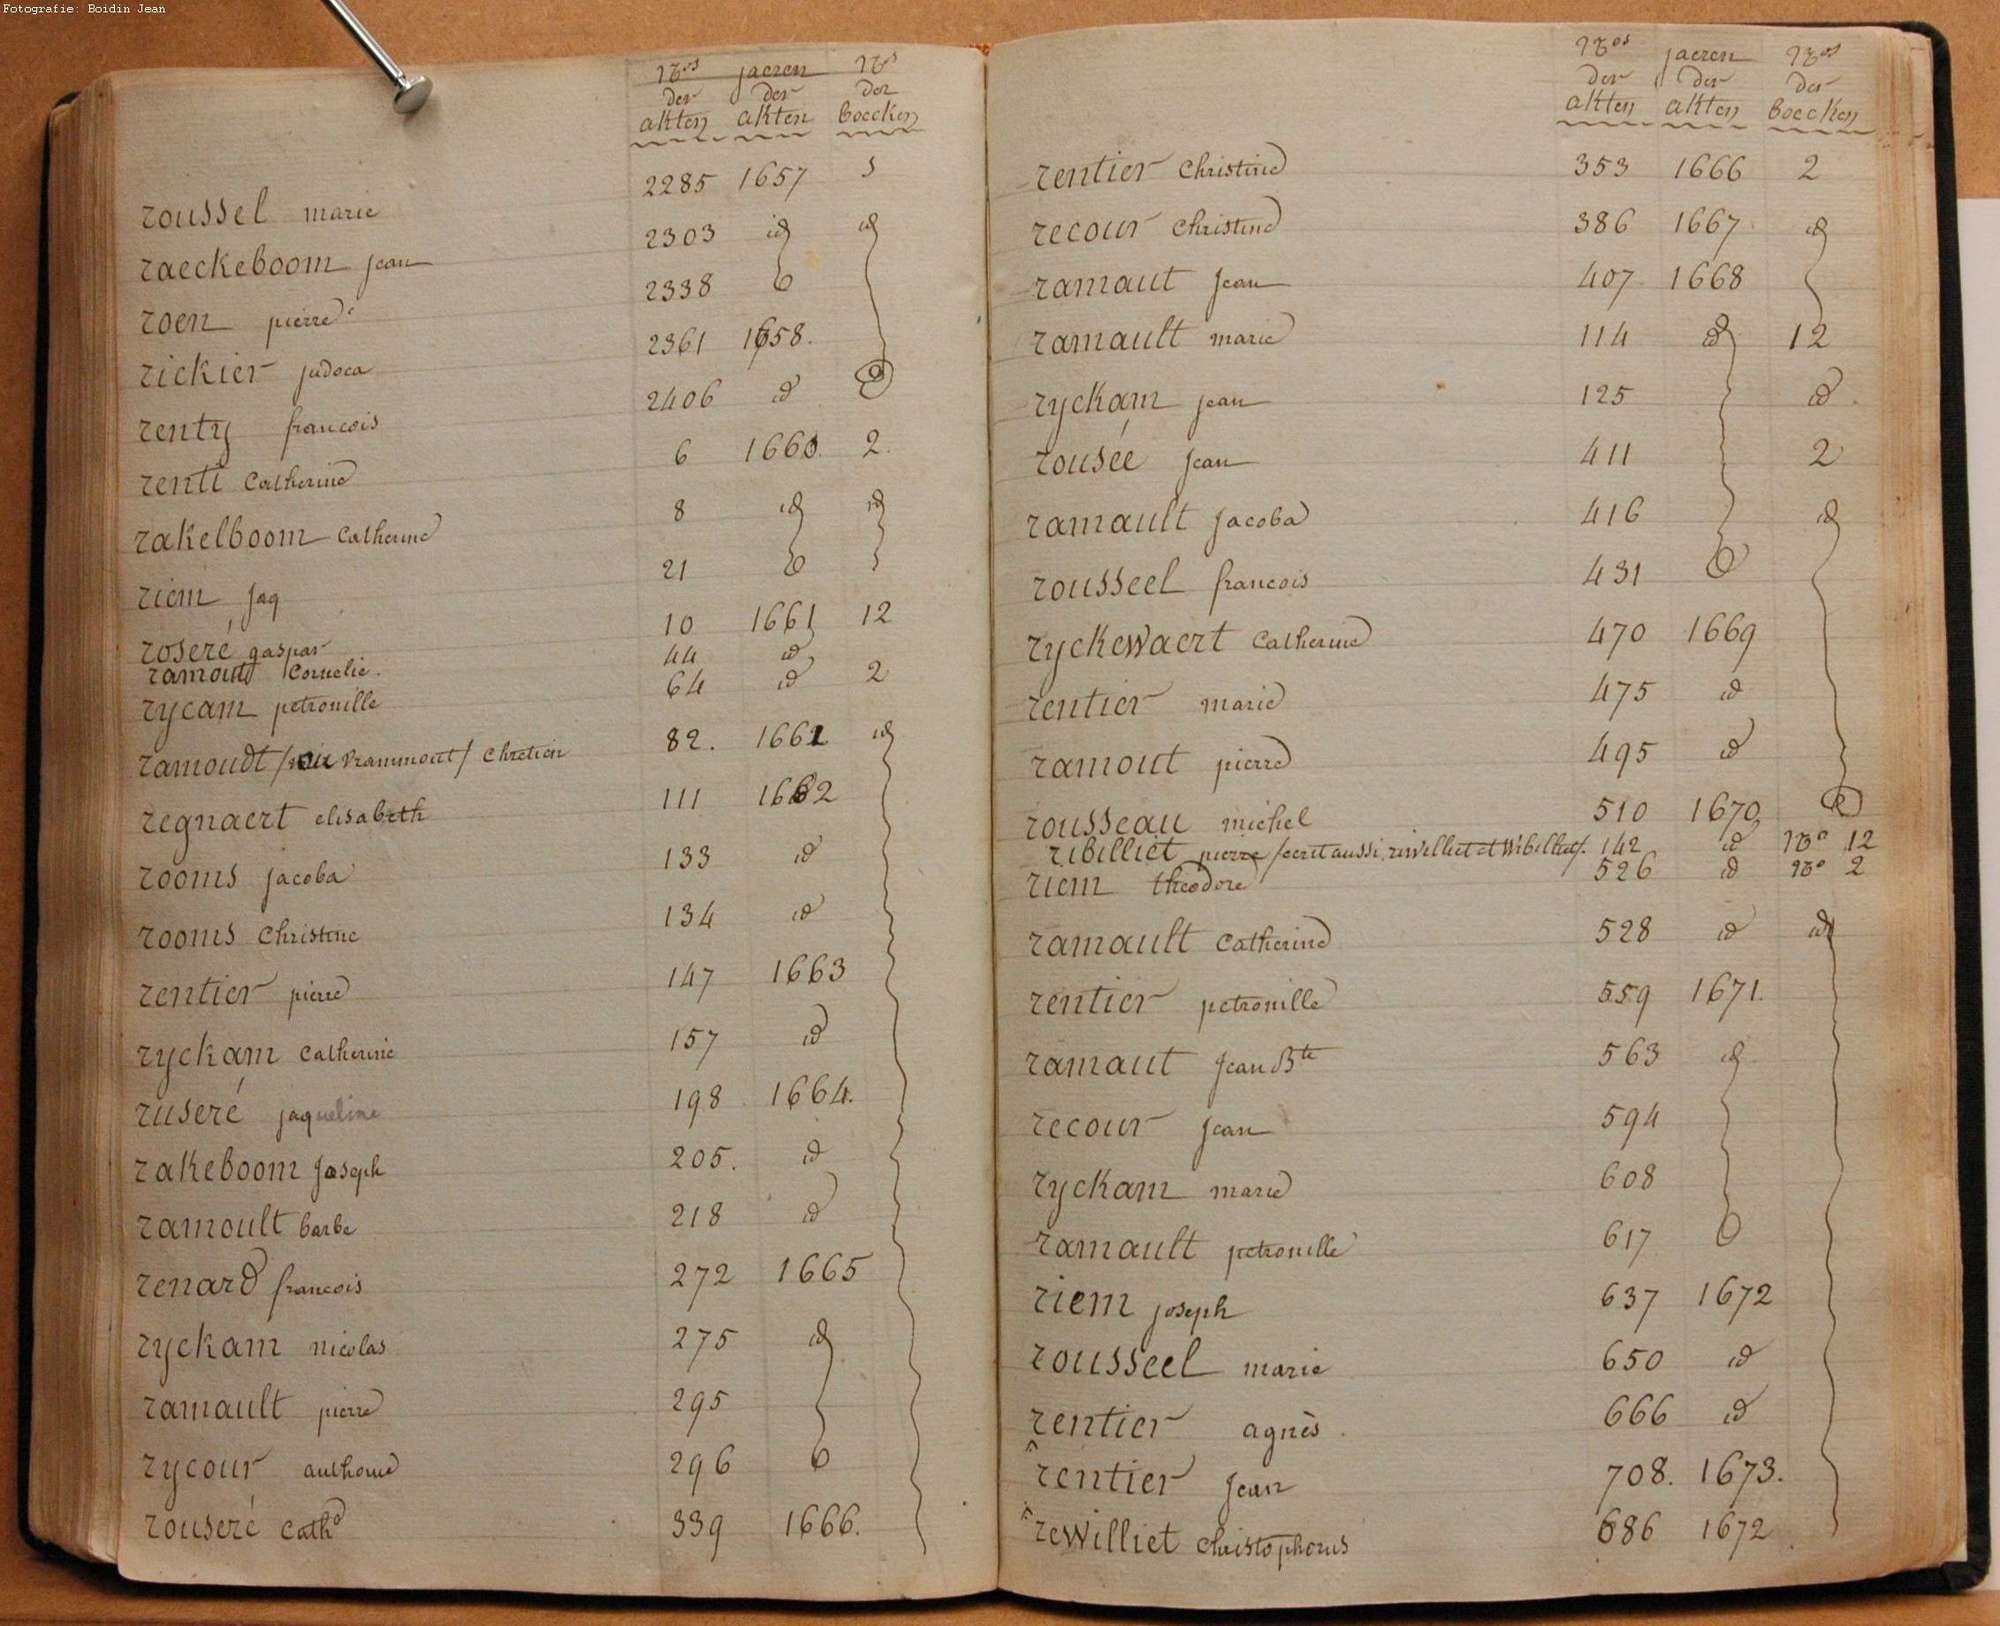 Fotografie: Boidin Jean
Nros jaeren Nros
der der der
akten akten boecken
roussel marie 2285 1657 5
raeckeboom jean 2303 id id
roen pierre 2338
rickier judoca 2361 1658.
renty francois 2406 id
renti Catherine 6 1660. 2.
rakelboom Catherine 8 id id
riem jaq 21
roseré gaspar 10 1661 12
ramout Cornelie. 44 id
rycam petronille 64 id 2
ramoudt / Prammout / Chretien 82. 1662 id
regnaert elisabeth 111 1662
rooms jacoba 133 id
rooms Christine 134 id
rentier pierre 147 1663
ryckam Catherine 157 id
ruseré jaqueline 198 1664.
rakeboom Joseph 205. id
ramoult barbe 218 id
renard francois 272 1665
ryckam nicolas 275 id
ramault pierre 295
rycour anthoine 296
rouseré Cathe 339 1666.
Nros jaeren Nros
der der der
akten akten boecken
rentier Christine 353 1666 2
recour Christine 386 1667. id
ramaut Jean 407 1668
ramault marie 114 id 12
ryckam jean 125 id.
rousée Jean 411 2
ramault Jacoba 416 id
rousseel francois 431
ryckewaert Catherine 470 1669
rentier marie 475 id
ramout pierre 495 id
rousseau michel 510 1670
ribilliet pierre /ecrit aussi, riwilliet et Wibilliet/. 142 id No 12
riem theodore 526 id No 2
ramault Catherine 528 id id
rentier petronille 559 1671.
ramaut Jean Bte 563 id
recour Jean 594
ryckam marie 608
ramault petronille 617
riem joseph 637 1672
rousseel marie 650 id
rentier agnès. 666 id
rentier Jean 708. 1673.
rewilliet Christophorus 686 1672